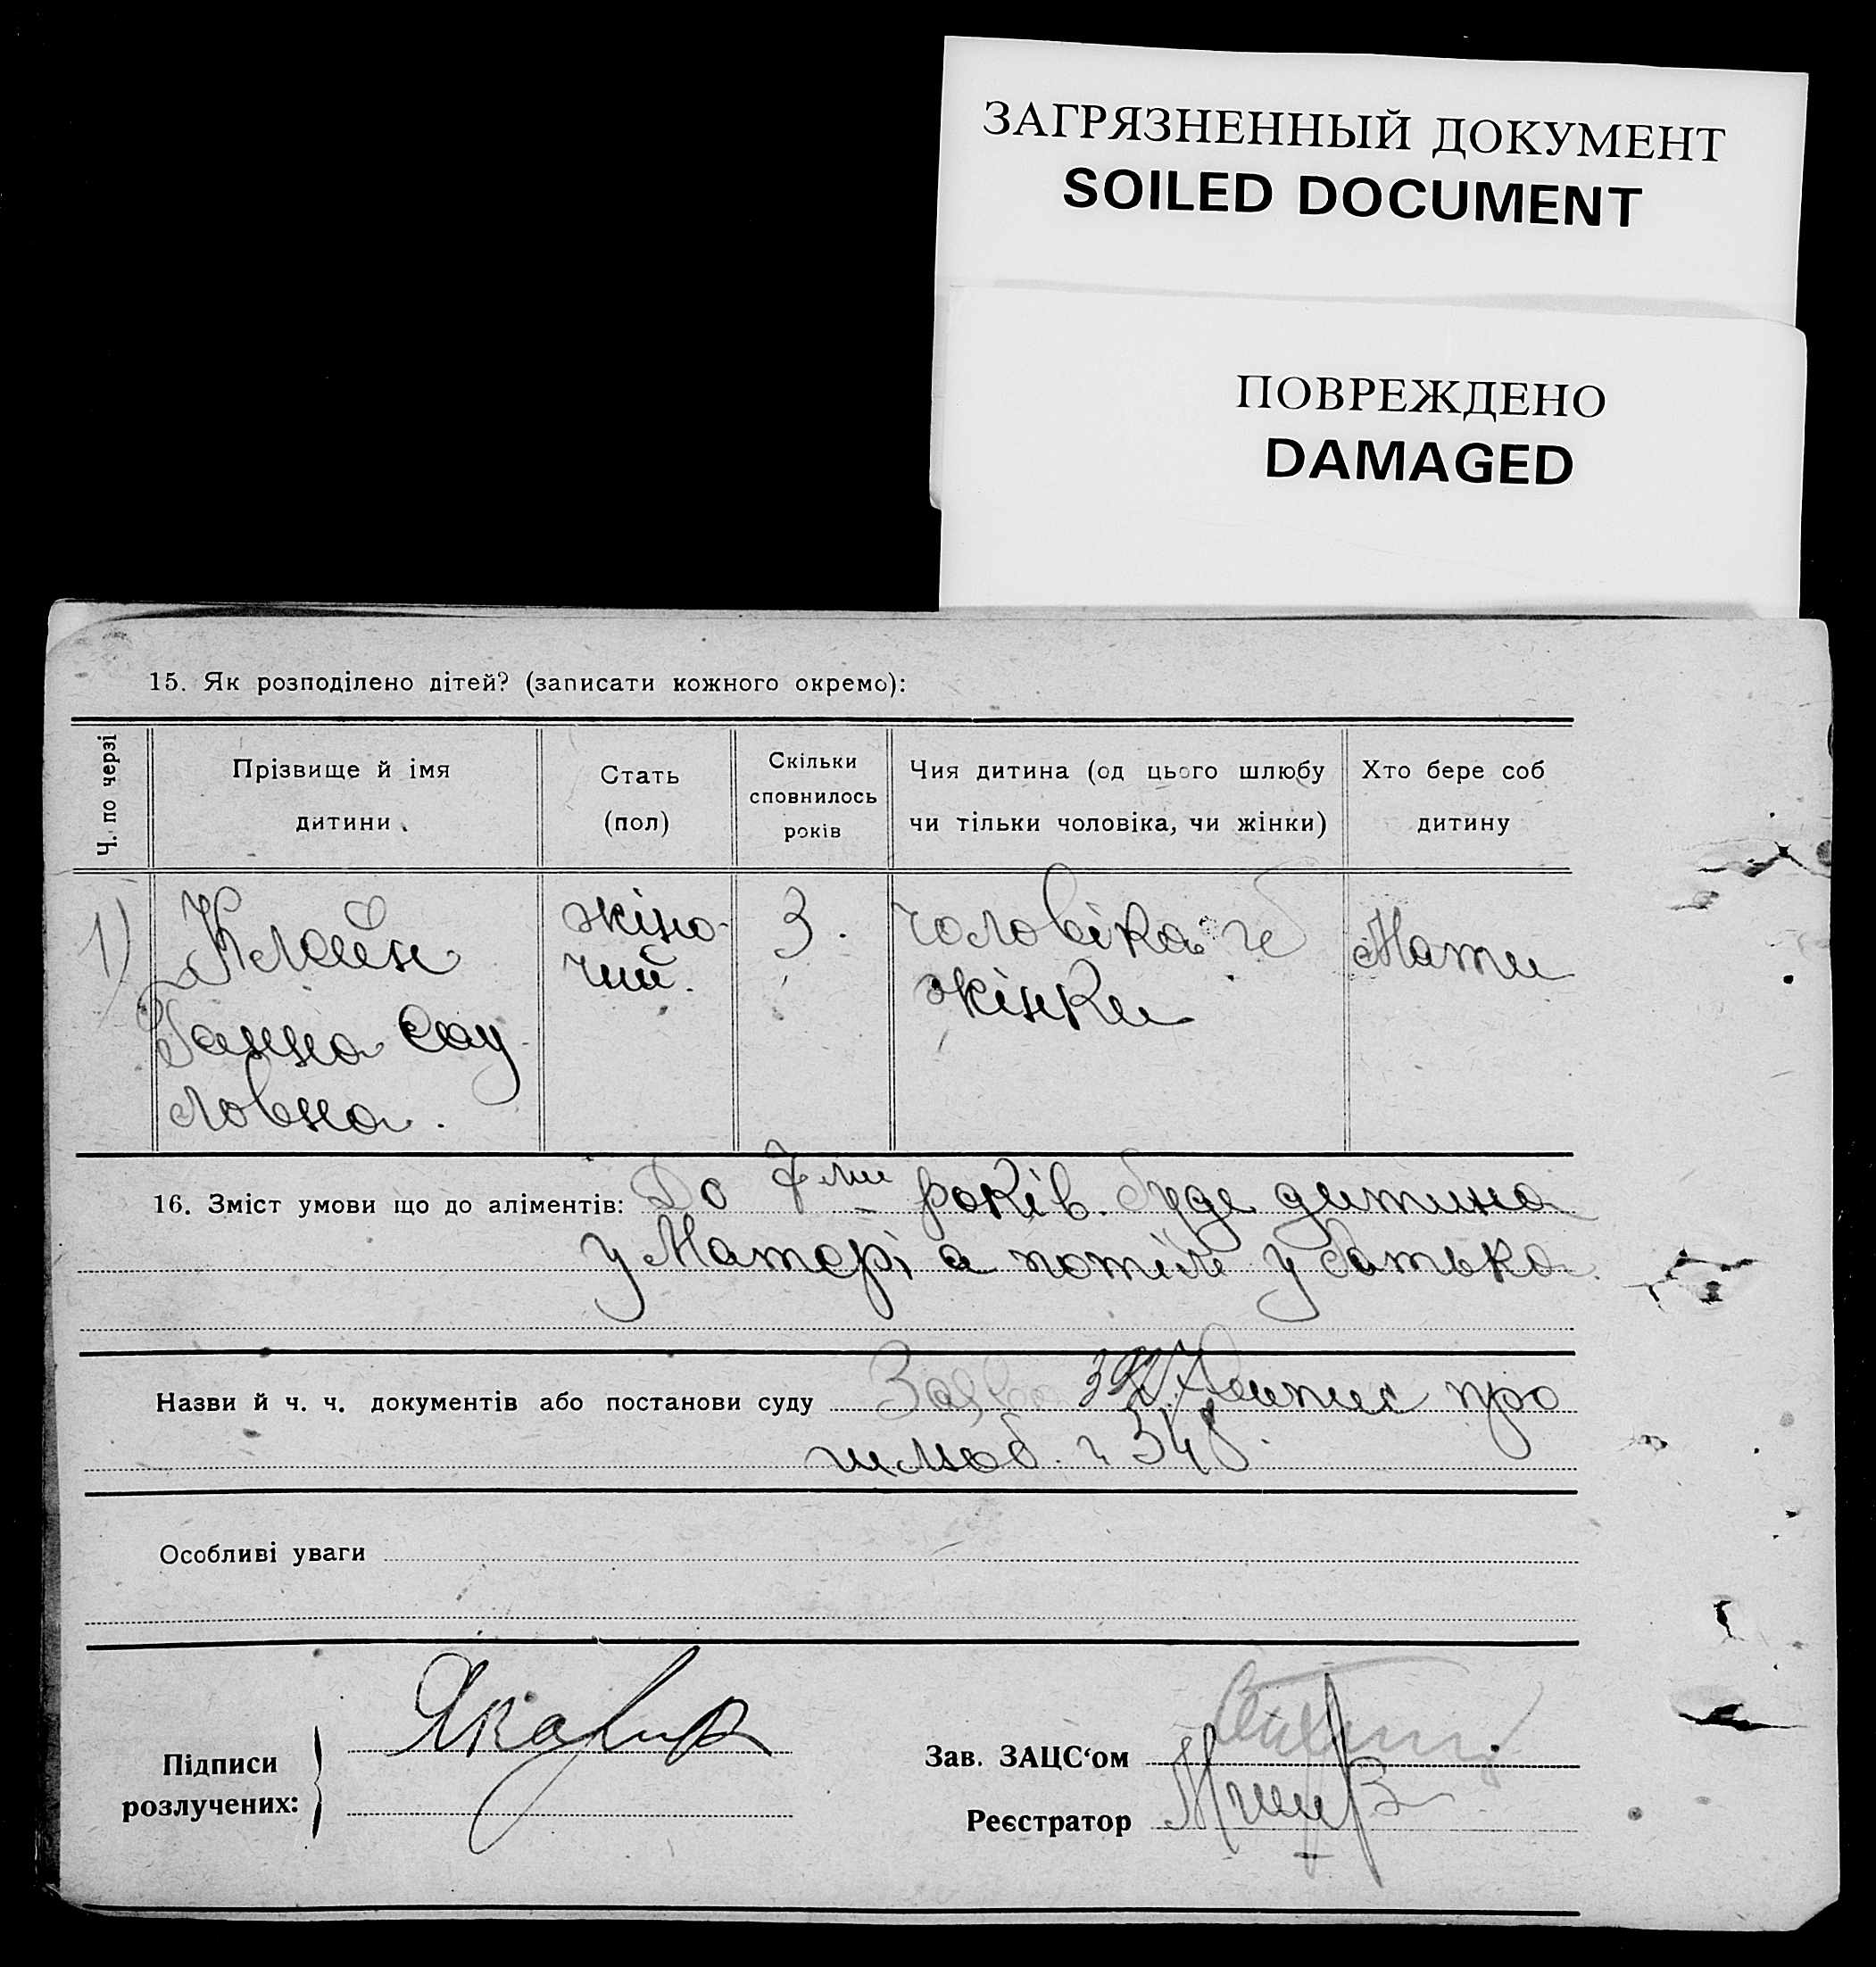 ЗАГРЯЗНЕННЫЙ ДОКУМЕНТ
SOILED DOCUMENT
ПОВРЕЖДЕНО
DAMAGED
15. Як розподілено дітей? (записати кожного окремо):
Ч. по черзі
Прізвище й імя
дитини
Стать
(пол)
Скільки
сповнилось
років
Чия дитина (од цього шлюбу
чи тільки чоловіка, чи жінки)
Хто бере соб
дитину
1)
Клейн
Ганна Сау
ловна.
жіно-
чий.
3.
чоловіка й
жінки
Мати
16. Зміст умови що до аліментів: До 7ми років буде дитина
у Матері а потім у батька.
Назви й ч. ч. документів або постанови суду Заява 327 Випис про
шлюб. ч 348.
Особливі уваги
Підписи
розлучених:
Зав. ЗАЦС‘ом
Реєстратор